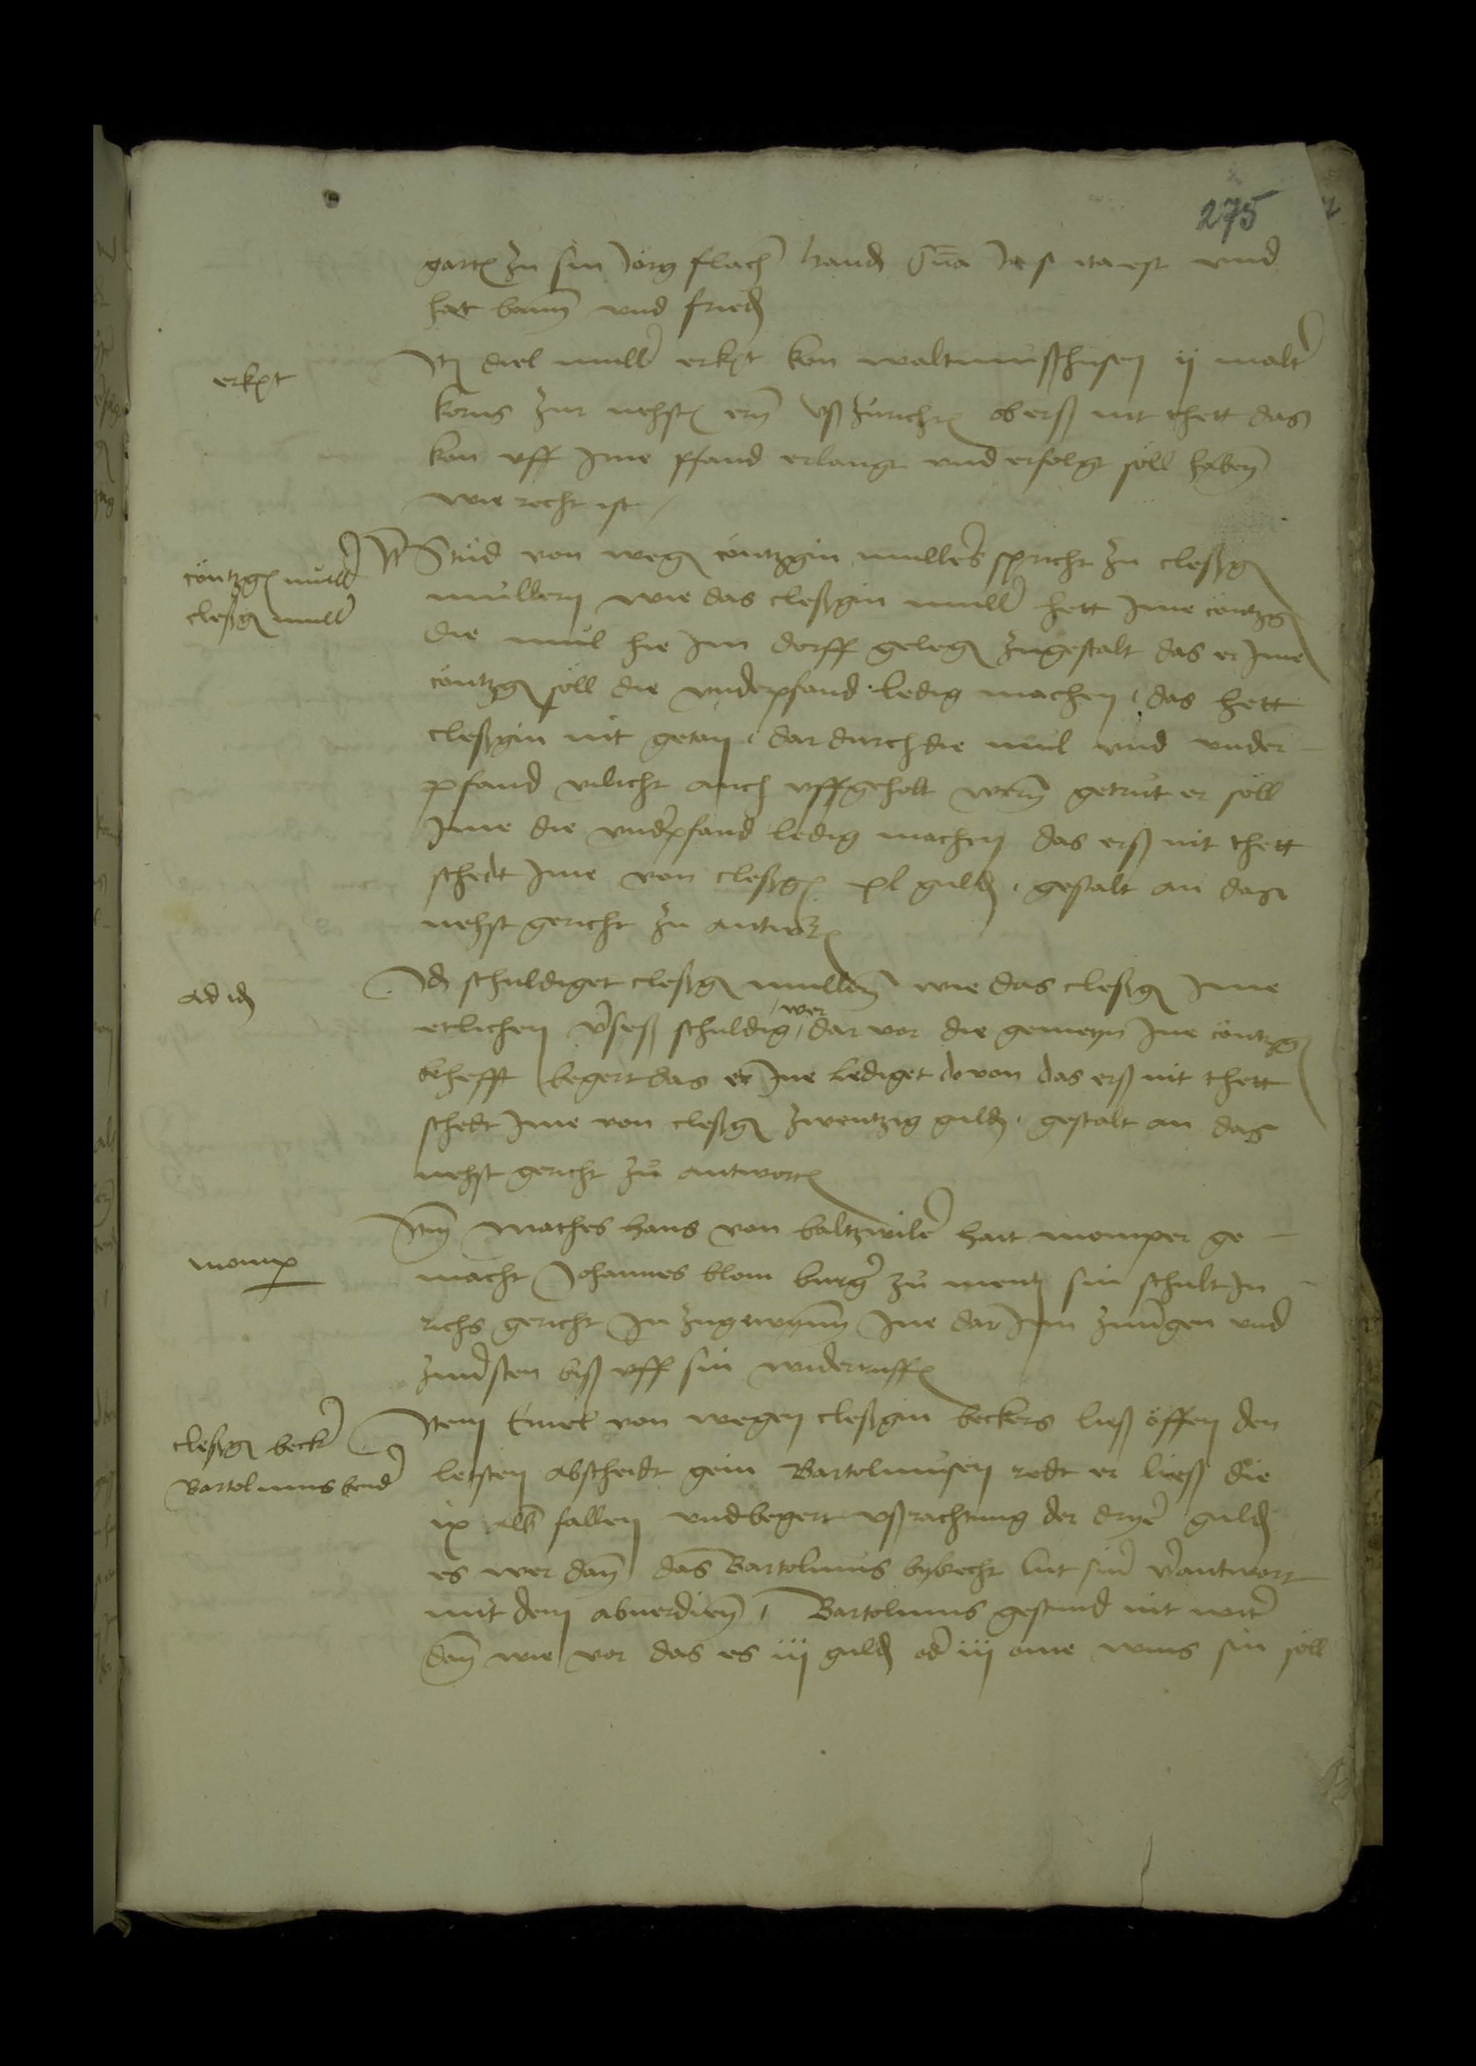 275
garten zu sin Jorg flach hand p(ri)ma Jt s ita est vnd
hat bann vnd frieden
erkent
Item diel muller erkent kon waltmuszhusen ij malter
korns zur nehsten ern vß zurichten ob erß nit thett das
kon vff Ime pfand erlangt vnd erfolgt soll haben
wie recht ist
contzgen muller
cleßgen muller
Item Stud von wegen contzgin mullers spricht zu cleßgen
mullern wie das cleßgin muller hett Ime contzgen
die mul hie Im dorff gelegen zugestalt das er Ime
contzgen soll die vnderpfand ledig machen das hett
cleßgin nit getan dar durch die mul vnd vnder
pfand vilicht auch vffgeholt wern getrut er soll
Ime die vnderpfand ledig machen das erß nit thett
schedt Ime von cleßgen xl gulden gestalt an das
nehst gericht zu antworten
ad idem
Idem schuldiget cleßgen mullern wie das cleßgen Ime
etlichen verseß schuldig wer dar vor die gemeyn Ine contzgen
behefft begert das er Ine lediget do von das erß nit thett
schedt Ime von cleßgen zwentzig gulden gestalt an das
nehst gericht zu antworten
momper
Item Mathes hans von baltzwiler hait momper ge
macht Johannes blom burger zu mentz sin schult In
richs gericht In zugewynnen Ine dar Inn zuuertgen vnd
zuuersten biß vff sin widerruffen
cleßgen becker
Bartolmus bender
Item Emel von wegen cleßgin beckers ließ offen den
letsten abscheidt gein Bartolmusen redt er ließ die
ix alb fallen vnd begert vßrachtung der dryer gulden
es wer dan das Bartolmus bybrecht lut siner verantwort
mit dem abuerdienen Bartolmus gestund nit witer
dan wie vor das es iij gulden oder iij ame wins sin soll